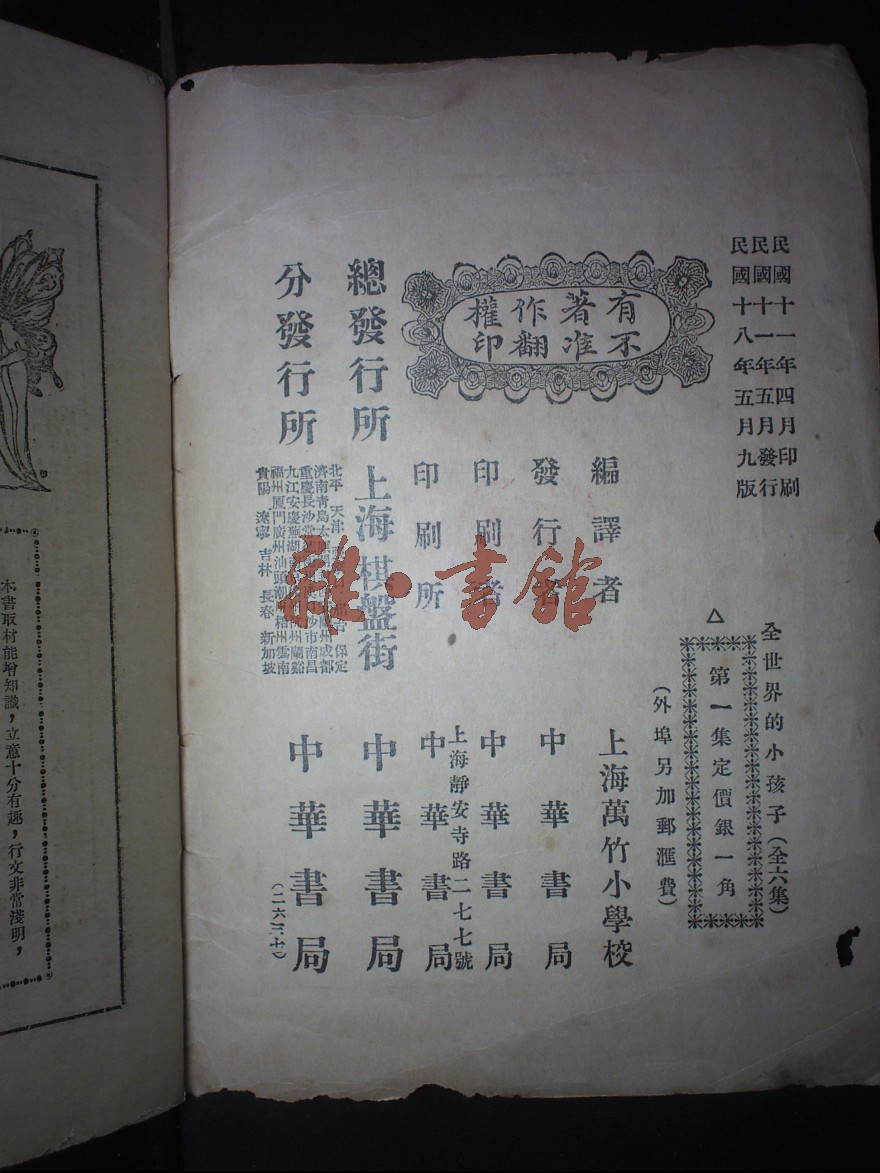 民國十一年四月印刷
民國十一年五月發行
民國十八年五月九版
有著作權
不准翻印
全世界的小孩子(全六集)
△
第一集定價銀一角
(外埠另加郵滙費)
編譯者 上海萬竹小學校
發行者 中華書局
印刷者 中華書局
上海靜安寺路二七七號
印刷所 中華書局
總發行所 上海棋盤街 中華書局
分發行所 中華書局
北平 天津 保定
濟南青島太原 蘭州成都
重慶長沙常 沙市南昌
九江安慶蕪湖 州蘭谿
福州厦門廣州汕頭潮 梧州雲南
貴陽 遼寧 吉林 長春 新加坡
(二六三七)
雜·書館
本書取材能增知識,立意十分有趣,行文非常淺明,